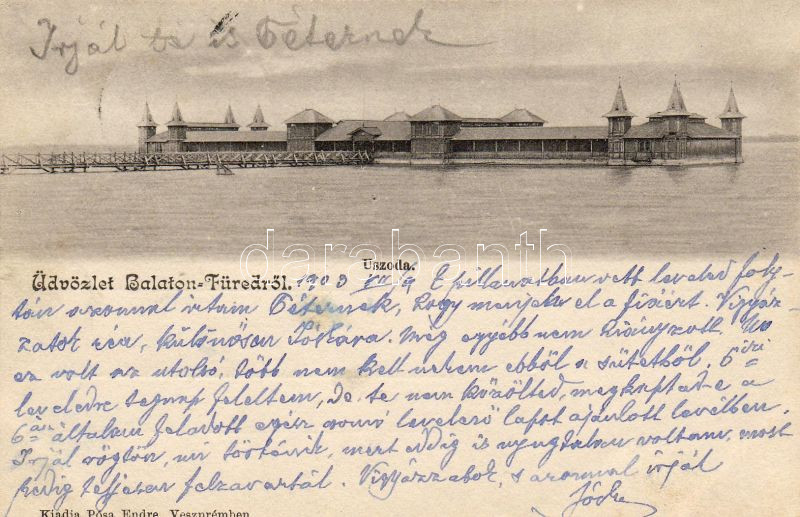 Irjál te is Péternek
darabanth
Uszoda.
Üdvözlet Balaton-Füredről. 1903 VII/9 E pillanatban vett leveled foly-
tán azonnal írtam Péternek, hogy menjek el a fiaért. Vigyáz-
zatok réa, különösen Jóskára. Még egyéb nem hiányzott. No
ez volt az utolsó, több nem kell nekem ebből a sütetből, 6 iki
leveledre tegnap feleltem, de te nem közölted, megkaptál-e a
6 án általam feladott egész levelező lapot ajánlott levélben.
Irjál rögtön, mi történik, mert eddig is nyugtalan voltam, most
pedig teljesen felzavartál. Vigyázzatok, s azonnal írjál
Kiadja Pósa Endre, Veszprémben